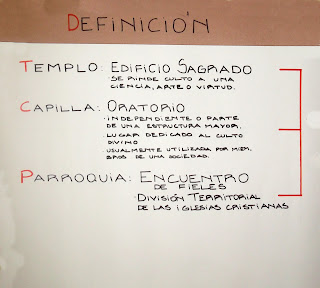 DEFINICIÓN
TEMPLO: EDIFICIO SAGRADO
·SE RINDE CULTO A UNA
CIENCIA, ARTE O VIRTUD.
CAPILLA: ORATORIO
·INDEPENDIENTE O PARTE
DE UNA ESTRUCTURA MAYOR,
LUGAR DEDICADO AL CULTO
DIVINO
·USUALMENTE UTILIZADA POR MIEM
BROS DE UNA SOCIEDAD.
PARROQUIA: ENCUENTRO
DE FIELES
·DIVISIÓN TERRITORIAL
DE LAS IGLESIAS CRISTIANAS